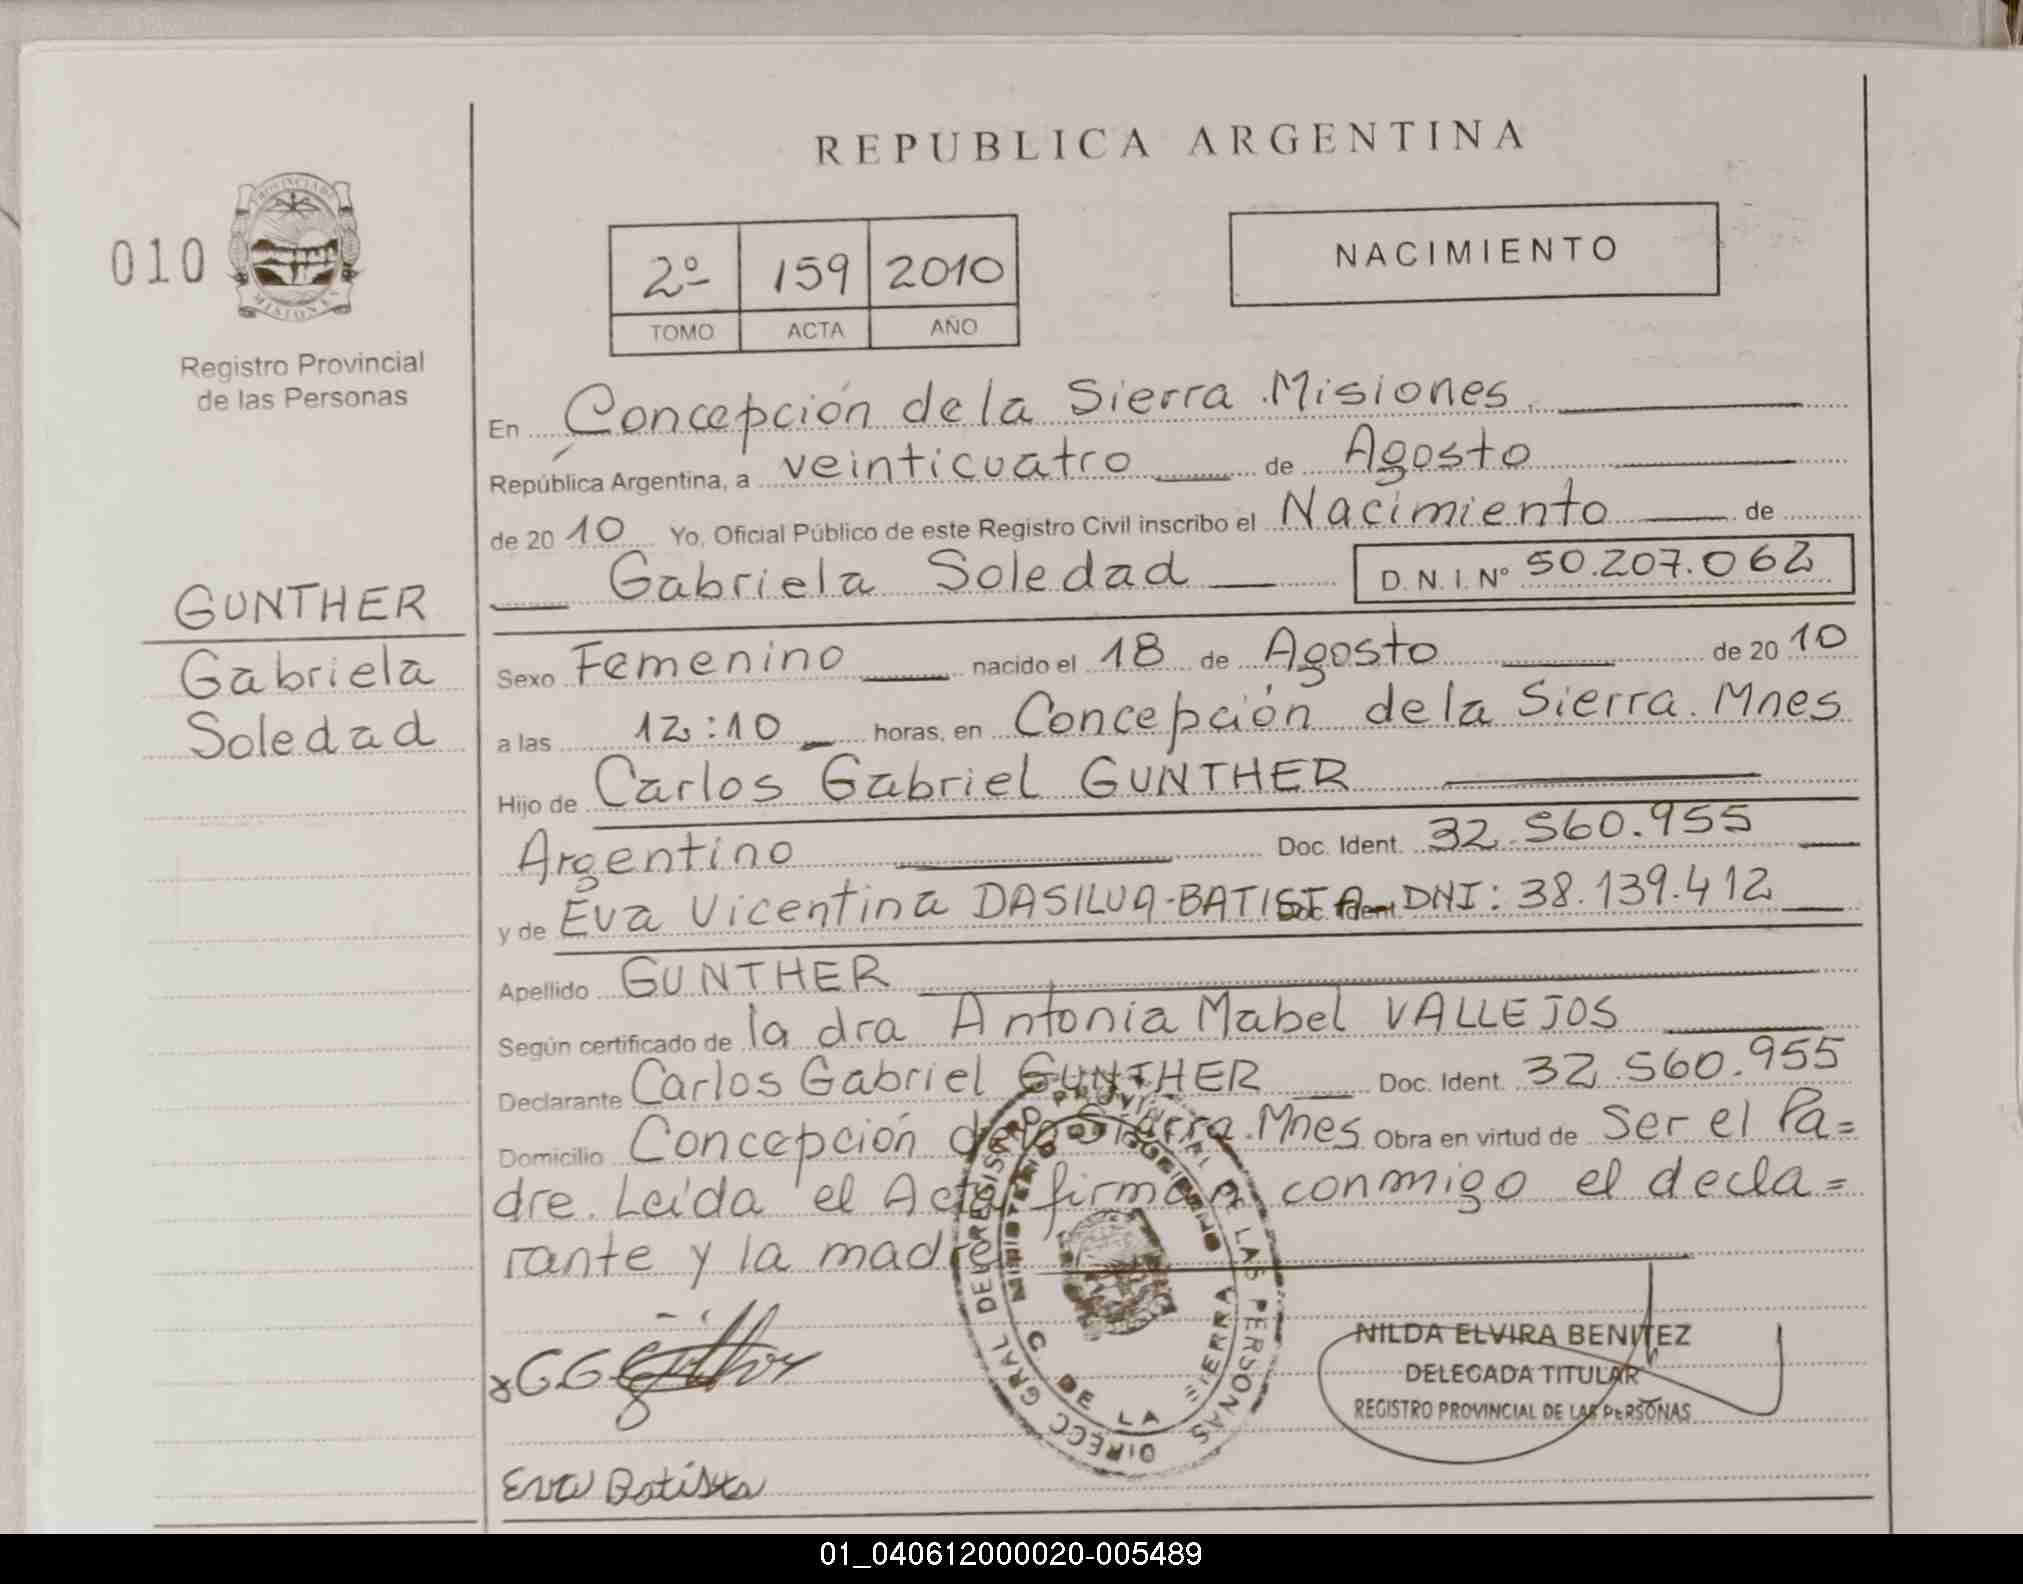 REPUBLICA ARGENTINA
010
PROVINCIA DE
MISIONES
Registro Provincial
de las Personas
2º 159 2010
TOMO ACTA AÑO
NACIMIENTO
En Concepción de la Sierra Misiones
República Argentina, a veinticuatro de Agosto
de 2010 Yo, Oficial Público de este Registro Civil inscribo el Nacimiento de
Gabriela Soledad D.N.I.Nº 50.207.062
GUNTHER
Gabriela
Soledad
Sexo Femenino nacido el 18 de Agosto de 2010
a las 12:10 horas, en Concepción de la Sierra. Mnes
Hijo de Carlos Gabriel GUNTHER
Argentino Doc. Ident. 32.560.955
y de Eva Vicentina DASILVA-BATISTA Doc. Ident. DNI: 38.139.412
Apellido GUNTHER
Según certificado de la dra Antonia Mabel VALLEJOS
Declarante Carlos Gabriel GUNTHER Doc. Ident. 32.560.955
Domicilio Concepción de la Sierra. Mnes Obra en virtud de Ser el Pa=
dre. Leída el Acta firman conmigo el decla=
rante y la madre
DIRECC GRAL DE REGISTRO PROVINCIAL DE LAS PERSONAS
MINISTERIO DE GOBIERNO
C. DE LA SIERRA
NILDA ELVIRA BENITEZ
DELEGADA TITULAR
REGISTRO PROVINCIAL DE LAS PERSONAS
Eva Batista
01_040612000020-005489